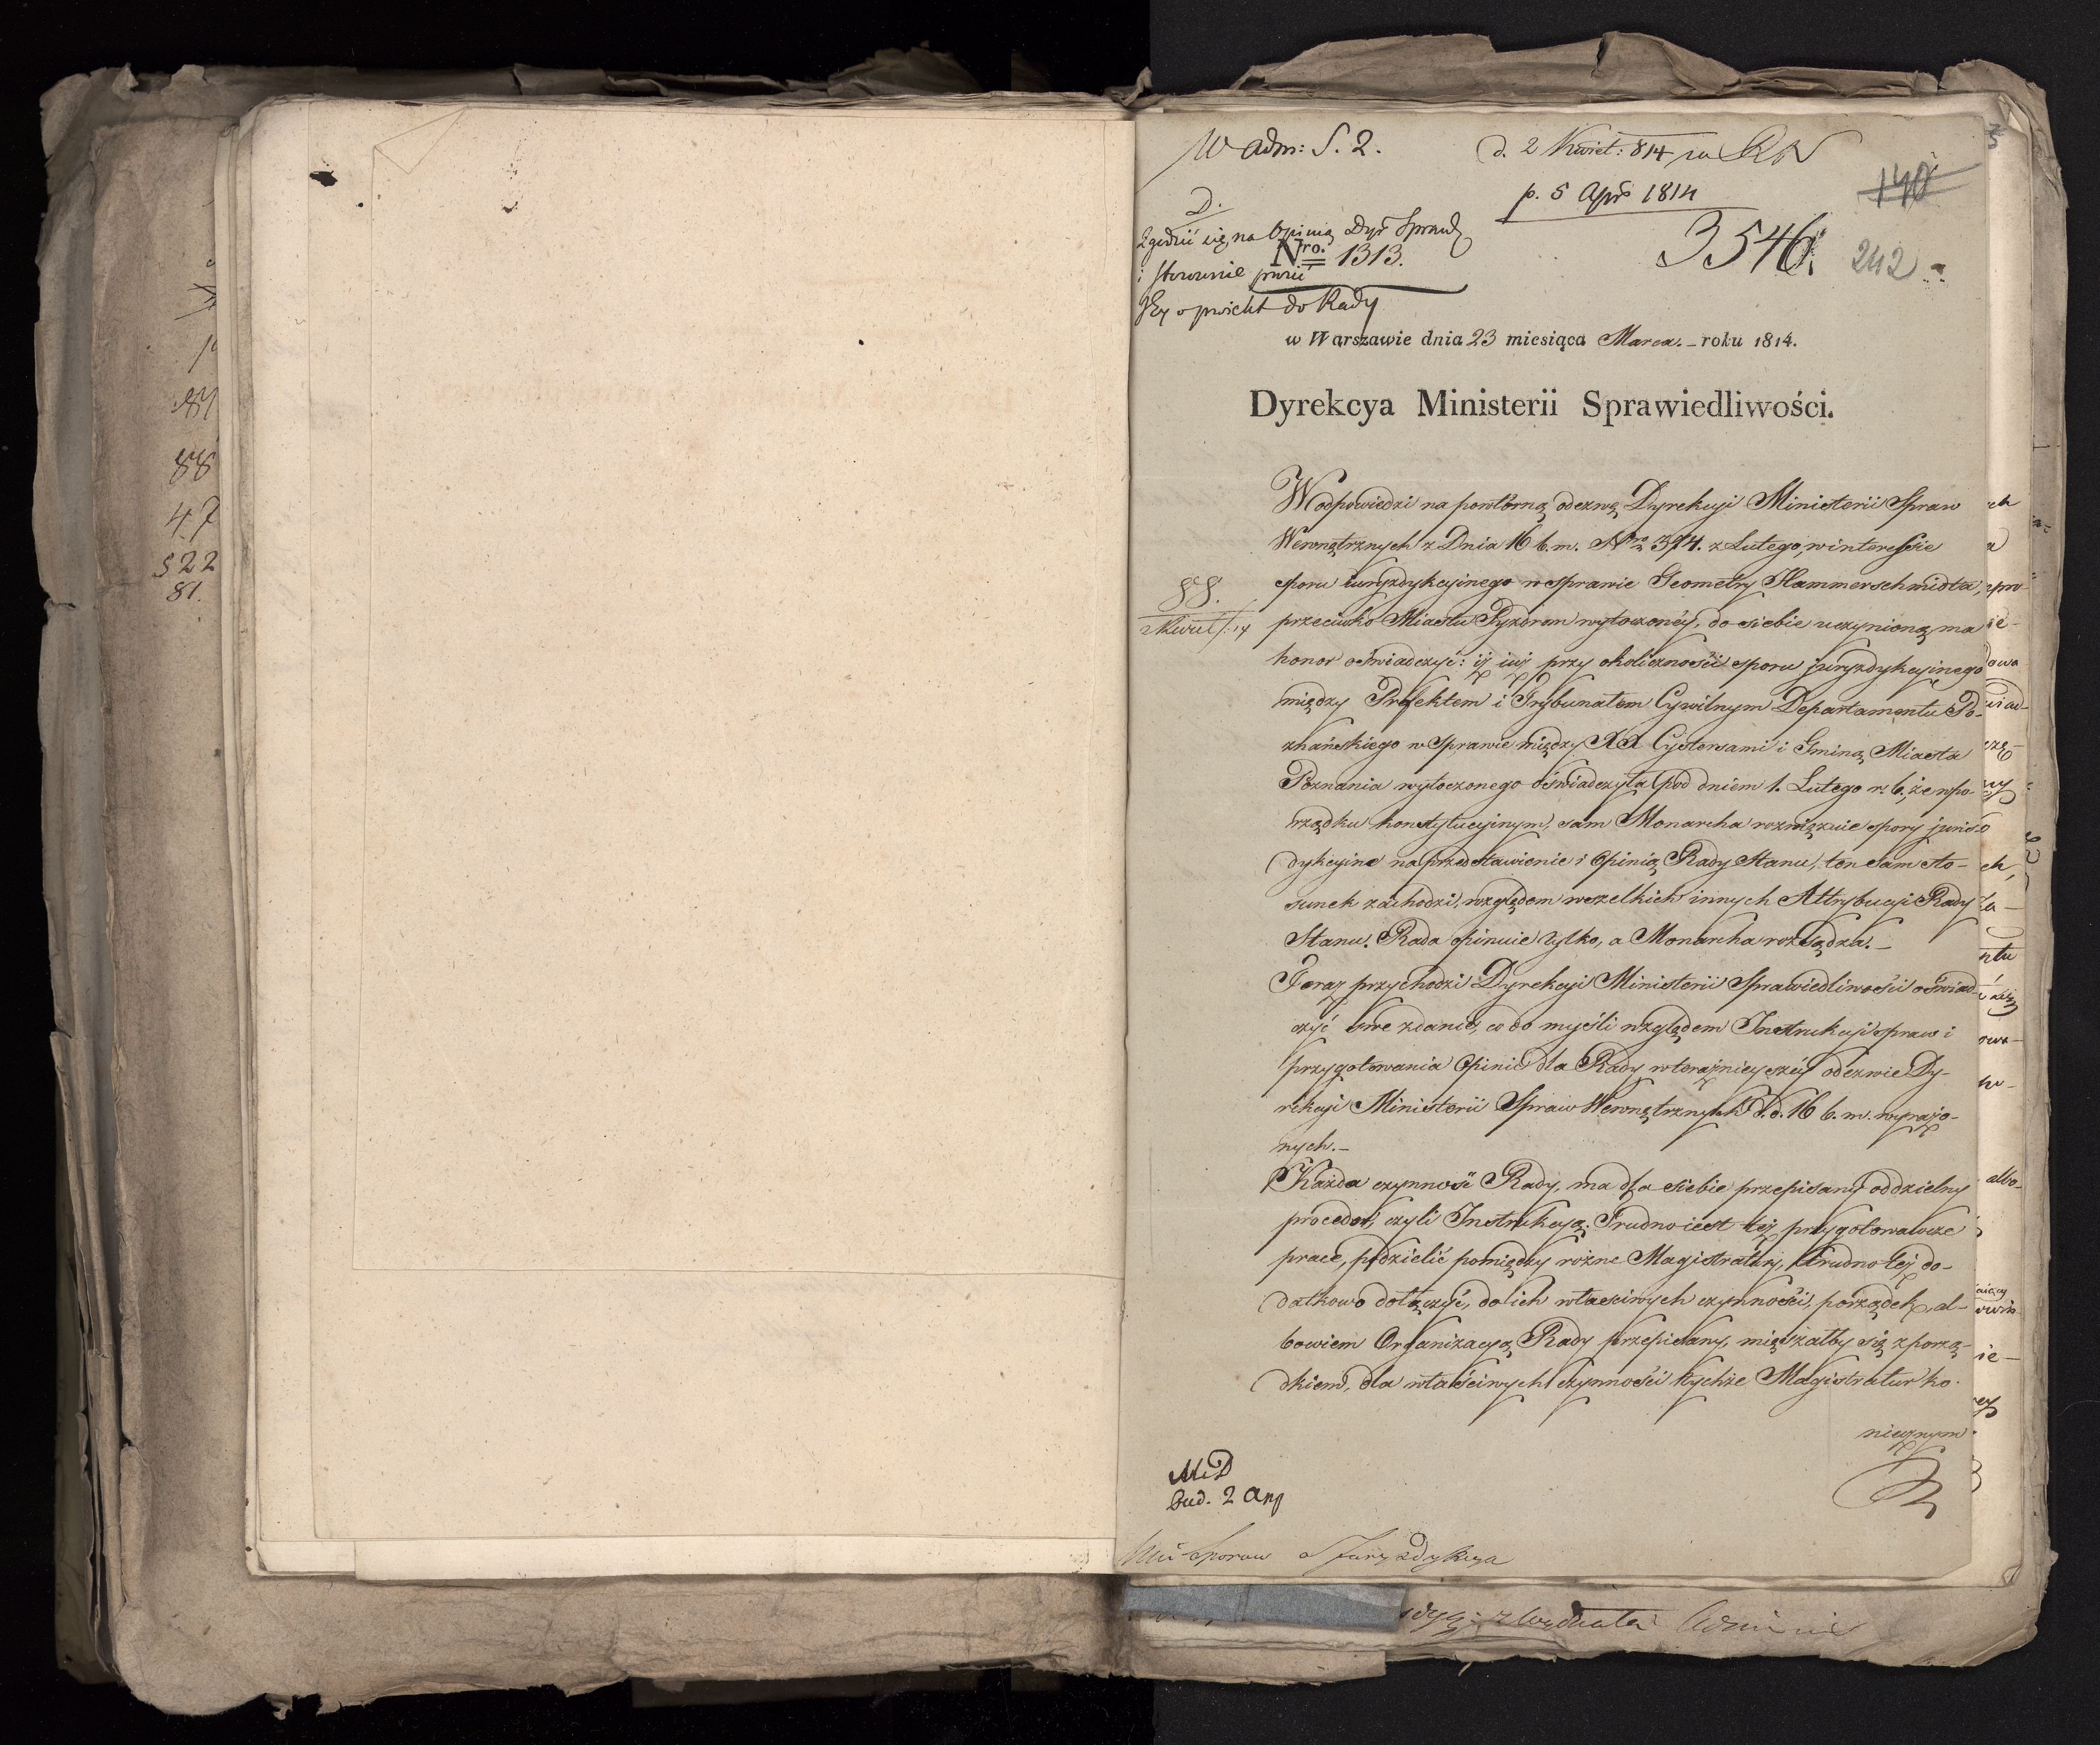 88
47
522
81.
W adm: S. 2.
d. 2 Kwiet: 814
p. 5 Apr 1814
140
3546.
242
D.
Zgodzić się na Opinią Dyr Spraw
Nro. 1313.
i stosownie
do Rady
w Warszawie dnia 23 miesiąca Marca. – roku 1814.
Dyrekcya Ministerii Sprawiedliwości.
W odpowiedzi na powtórną odezwę Dyrekcyi Ministerii Spraw
Wewnętrznych z Dnia 16 b. m. Nro 314. z Lutego, w interessie
sporu iuryzdykcyinego w sprawie Geometry Hammerschmidta,
88.
2 Kwiet: 14
przeciwko Miastu Pyzdrom wytoczonéy, do siebie uczynioną ma
honor oświadczyć: iż iuż przy okoliczności sporu juryzdykcyinego
między Prefektem i Trybunałem Cywilnym Departamentu Po-
znańskiego w sprawie między XX Cystersami i Gminą Miasta
Poznania wytoczonego oświadczyła pod dniem 1. Lutego r. b. że w po-
rządku konstytucyinym, sam Monarcha rozwiązuie spory juris-
dykcyine na przedstawienie i Opinią Rady Stanu, ten sam sto-
sunek zachodzi, względem wszelkich innych Attrybucyi Rady
Stanu. Rada opinuie tylko, a Monarcha rozsądza. –
Teraz przychodzi Dyrekcyi Ministerii Sprawiedliwości oświad-
czyć swe zdanie, co do myśli względem Instrukcyi spraw i
przygotowania Opinii dla Rady w teraźnieyszéy odezwie Dy-
rekcyi Ministerii Spraw Wewnętrznych d. d. 16 b. m. wyrażo-
nych. –
Każda czynność Rady, ma dla siebie przepisany oddzielny
proceder, czyli Instrukcyą. Trudno iest też przygotowawcze
prace, podzielić pomiędzy rożne Magistratury, trudno też do-
datkowo dołączyć, do ich właściwych czynności, porządek, al-
bowiem Organizacyą Rady przepisany, mięszałby się z porzą-
dkiem, dla właściwych czynności tychże Magistratur ko-
niecznym.
MD
bud. 2 Apr
Sporow Juryzdykcya